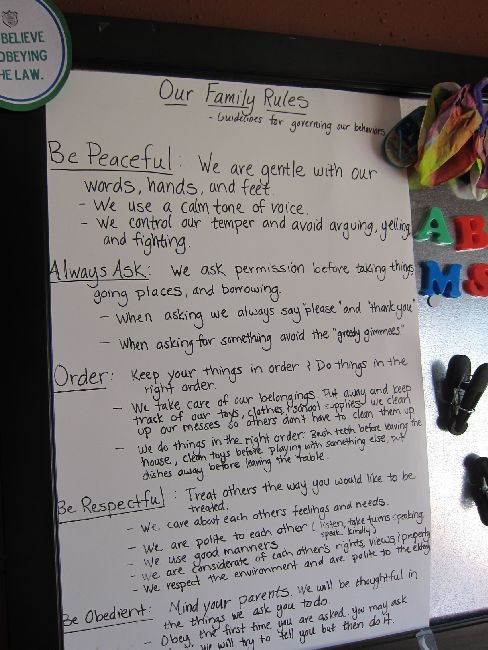 BELIEVE
OBEYING
THE LAW.
Our Family Rules
- Guidelines for governing our behaviors
Be Peaceful: We are gentle with our
words, hands, and feet.
- We use a calm tone of voice.
- We control our temper and avoid arguing, yelling
and fighting.
Always Ask: We ask permission before taking things
going places, and borrowing.
- When asking we always say "please" and "thank you"
- When asking for something avoid the "greedy gimmees"
Order: Keep your things in order & Do things in the
right order.
- We take care of our belongings. Put away and keep
track of our toys, clothes, & school supplies. We clean
up our messes so others don't have to clean them up
- We do things in the right order: Brush teeth before leaving the
house, clean toys before playing with something else, put
dishes away before leaving the table.
Be Respectful: Treat others the way you would like to be
treated.
- We care about each others feelings and needs.
- We are polite to each other (listen, take turns speaking,
speak kindly)
- We use good manners
- We are considerate of each other's rights, views & property
- We respect the environment and are polite to the elderly
Be Obedient: Mind your parents. We will be thoughtful in
the things we ask you to do.
- Obey the first time you are asked. you may ask
we will try to tell you but then do it.
A B
M S